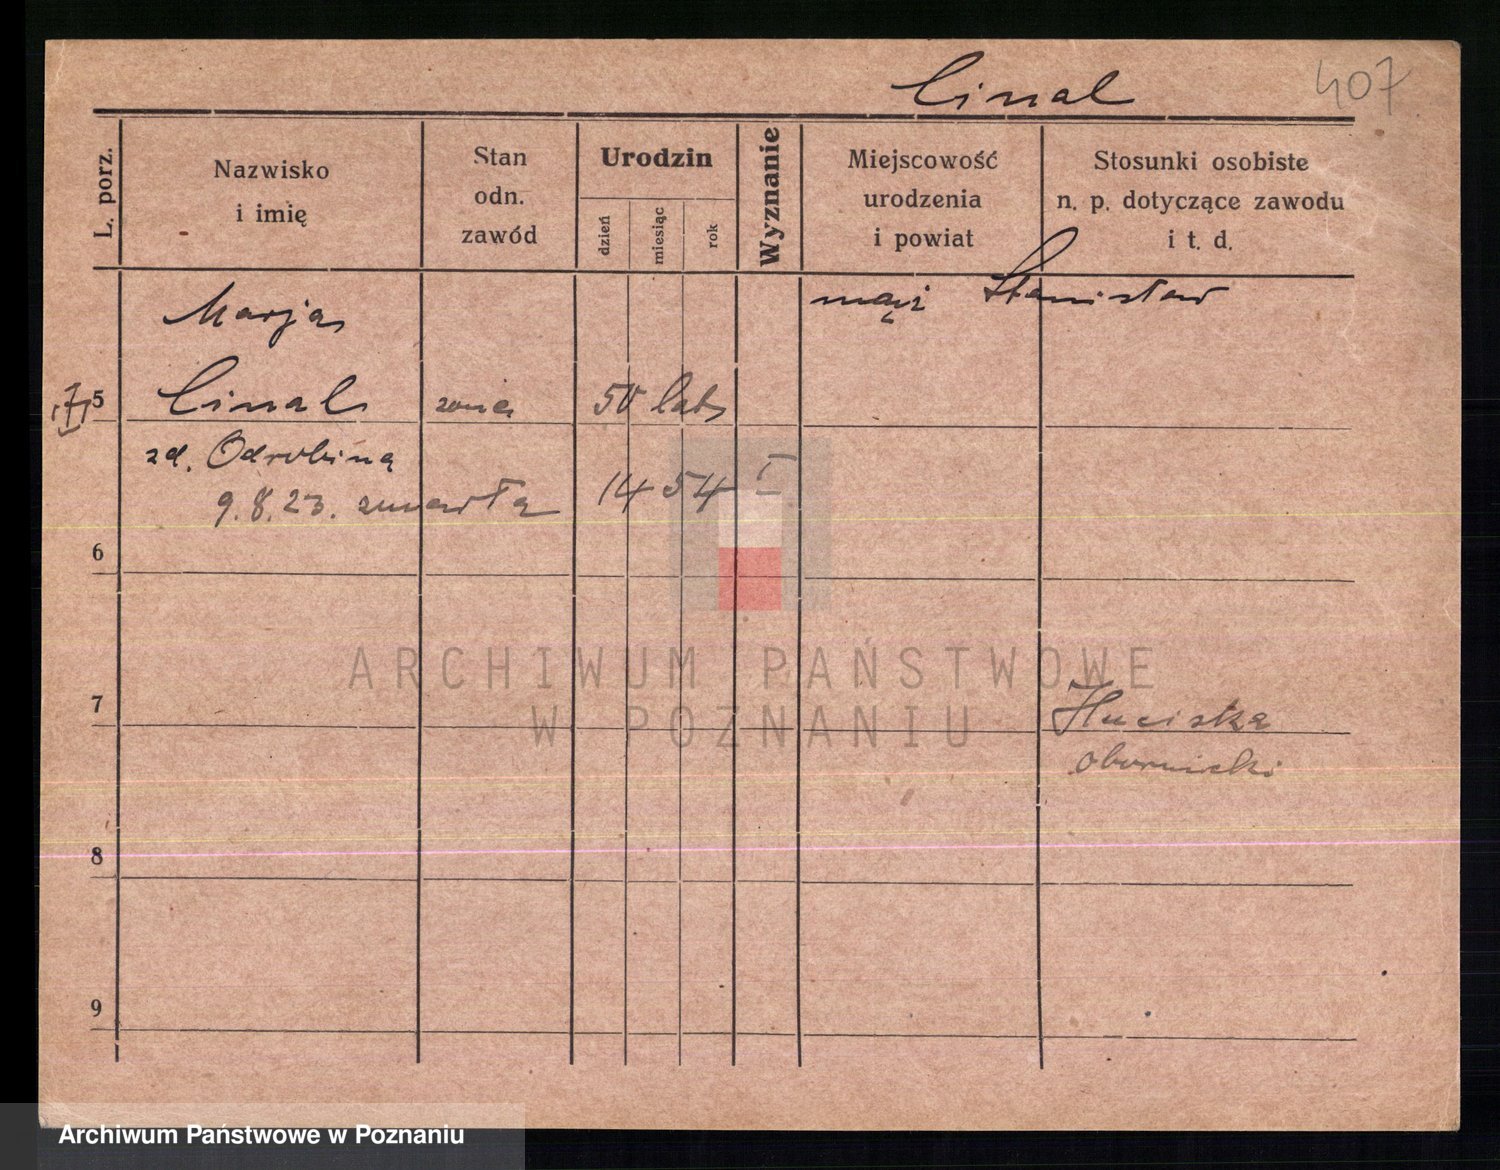 Cinal 407
L. porz.
Nazwisko
i imię
Stan
odn.
zawód
Urodzin
dzień
miesiąc
rok
Wyznanie
Miejscowość
urodzenia
i powiat
Stosunki osobiste
n. p. dotyczące zawodu
i t. d.
Marja mąż Stanisław
5 Cinal żona 50 lat
zd. Odrobina
9.8.23. zmarła 14 54
6
ARCHIWUM PAŃSTWOWE
W POZNANIU
7
obornicki
8
9
Archiwum Państwowe w Poznaniu